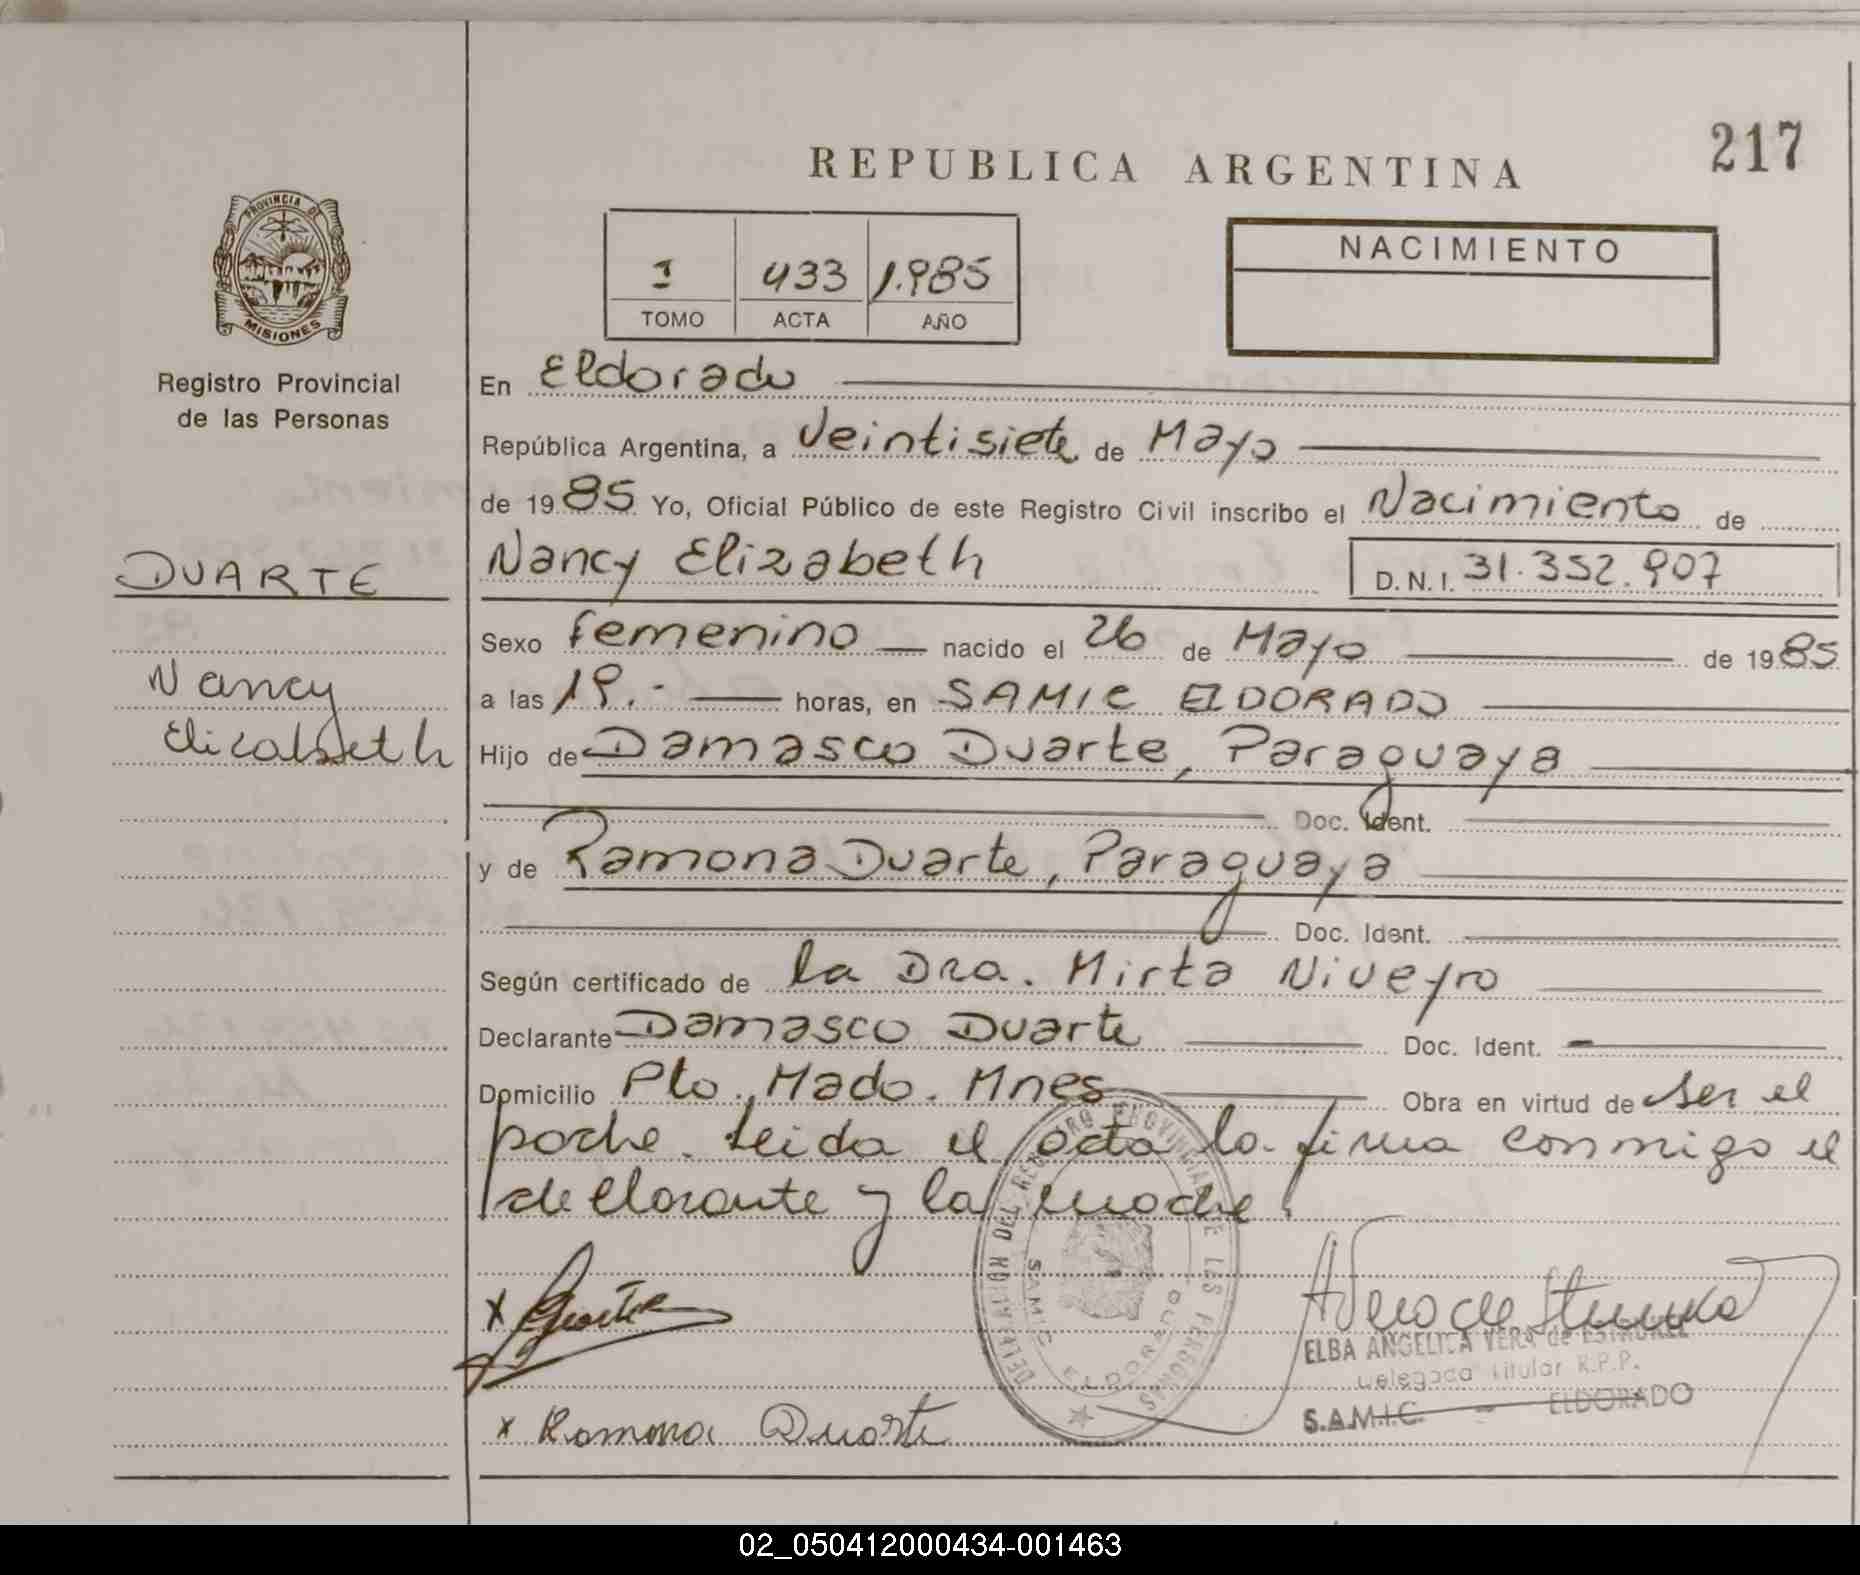 217
REPUBLICA ARGENTINA
PROVINCIA DE
MISIONES
Registro Provincial
de las Personas
I 433 1.985
TOMO ACTA AÑO
NACIMIENTO
En Eldorado
República Argentina, a Veintisiete de Mayo
de 1985 Yo, Oficial Público de este Registro Civil inscribo el Nacimiento de
DUARTE
Nancy Elizabeth D.N.I. 31.352.907
Sexo femenino nacido el 26 de Mayo de 1985
Nancy
Elizabeth
a las 19.- horas, en SAMIC ELDORADO
Hijo de Damasco Duarte, Paraguaya
Doc. Ident.
y de Ramona Duarte, Paraguaya
Doc. Ident.
Según certificado de la Dra. Mirta Niveyro
Declarante Damasco Duarte Doc. Ident. -
Domicilio Pto. Mado. Mnes Obra en virtud de ser el
padre. Leida el acta la firma conmigo el
declarante y la madre.
DELEGACION DEL REGISTRO PROVINCIAL DE LAS PERSONAS
SAMIC ELDORADO
x
ELBA ANGELICA VERA de
Delegada Titular R.P.P.
S.A.M.I.C. - ELDORADO
x Ramona Duarte
02_050412000434-001463